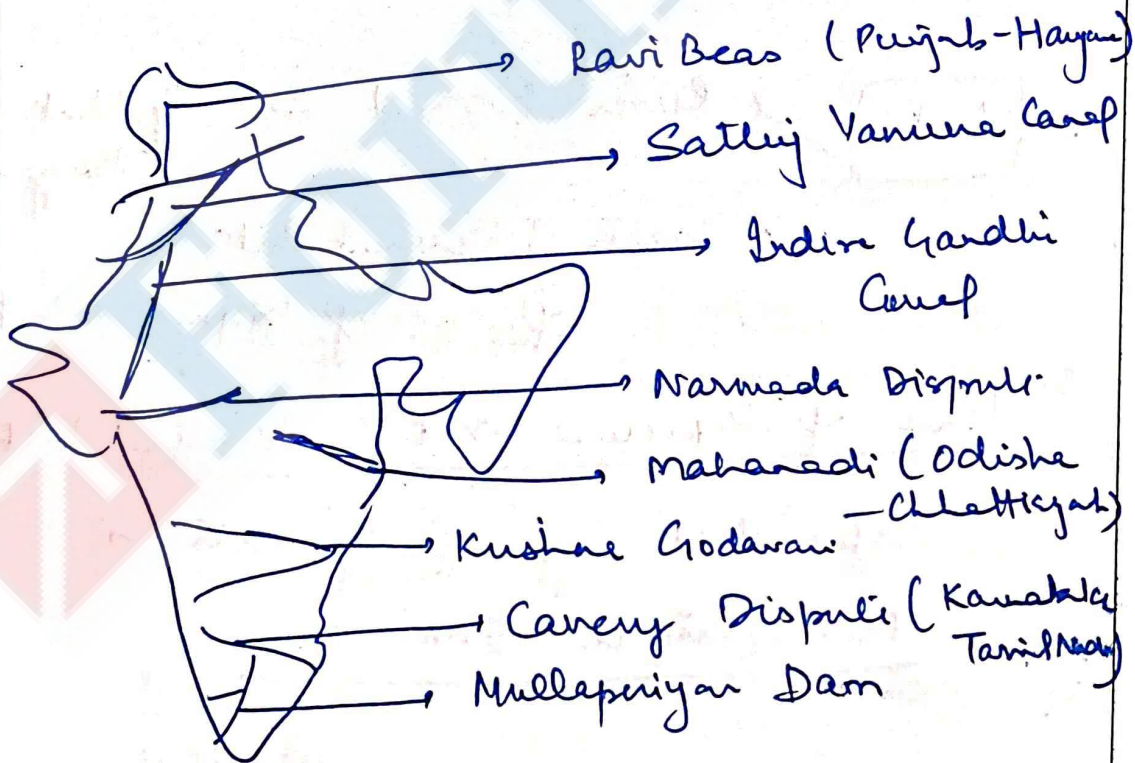 Ravi Beas (Punjab-Haryana)
Satluj Yamuna Canal
Indira Gandhi
Canal
Narmada Dispute
Mahanadi (Odisha
-Chhattisgarh)
Krishna Godavari
Cauvery Dispute (Karnataka
Tamil Nadu)
Mullaperiyar Dam